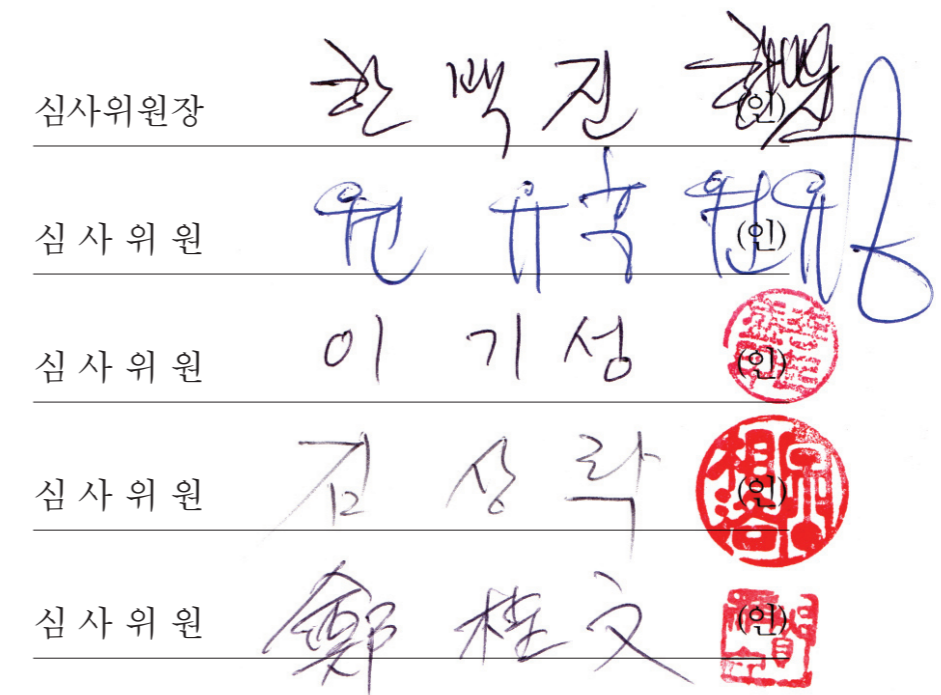 심사위원장 한 백 진 (인)
심 사 위 원 원 유 혹 (인)
심 사 위 원 이 기 성 (인)
심 사 위 원 김 상 락 (인)
심 사 위 원 鄭 桂 文 (인)